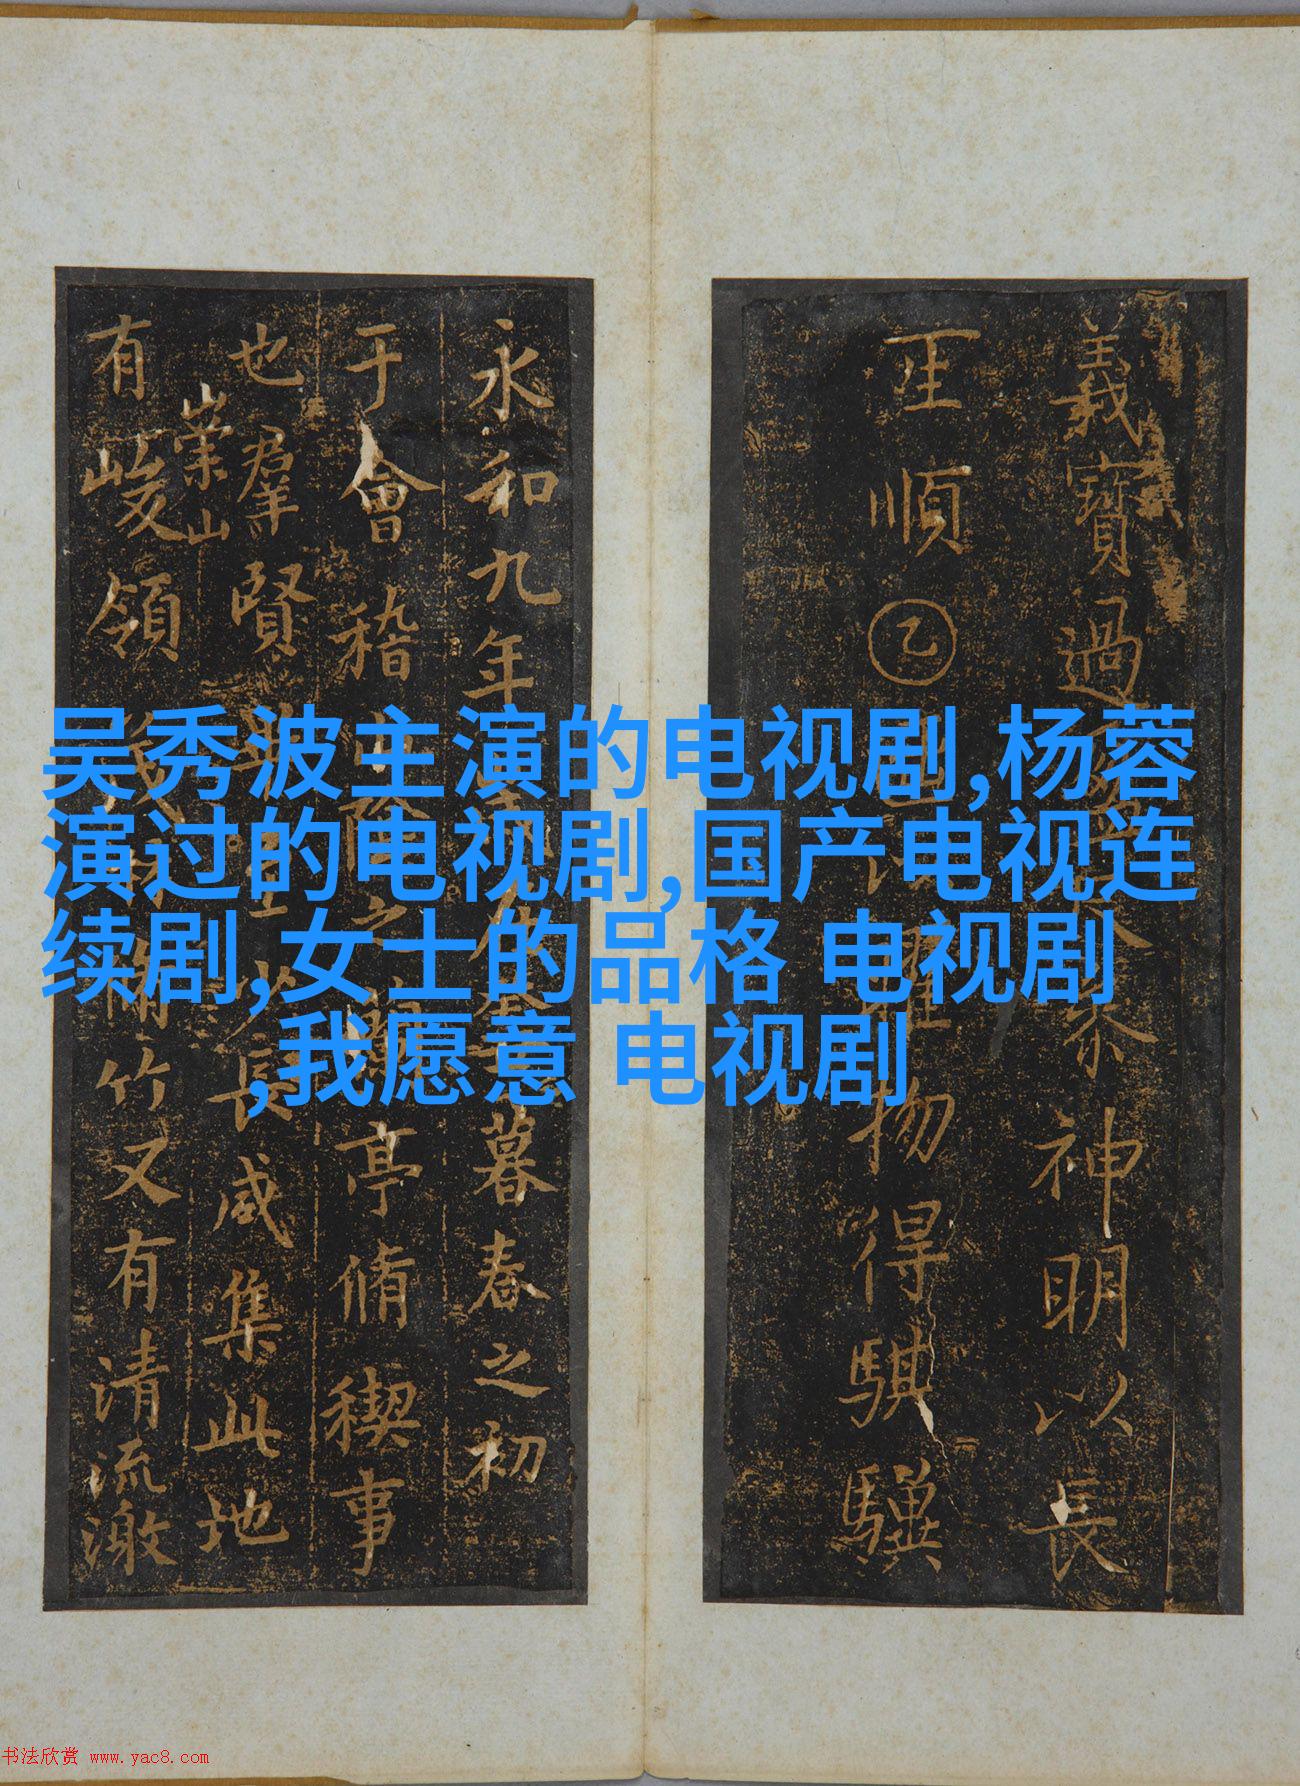 吴秀波主演的电视剧,杨蓉
演过的电视剧,国产电视连
续剧,女士的品格 电视剧
,我愿意 电视剧
義寶過神明以長
王順㇠物得騏驥
永和九年暮春之初
于會稽亭脩稧事
也羣賢長咸集此地
有崇山峻領竹又有清流激
书法欣赏 www.yac8.com